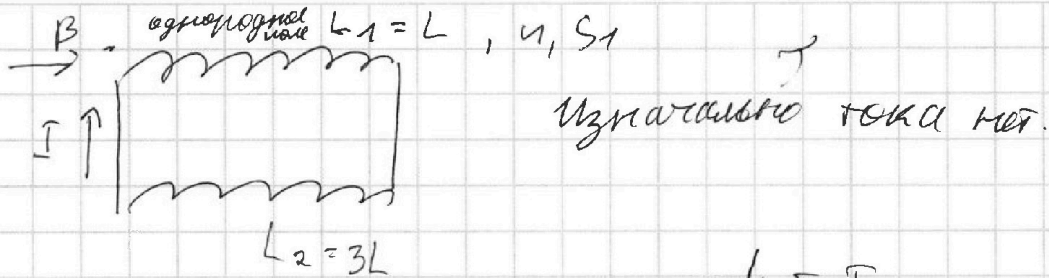 B однородное поле L1 = L , n, S1
I
Изначально тока нет.
L2 = 3L